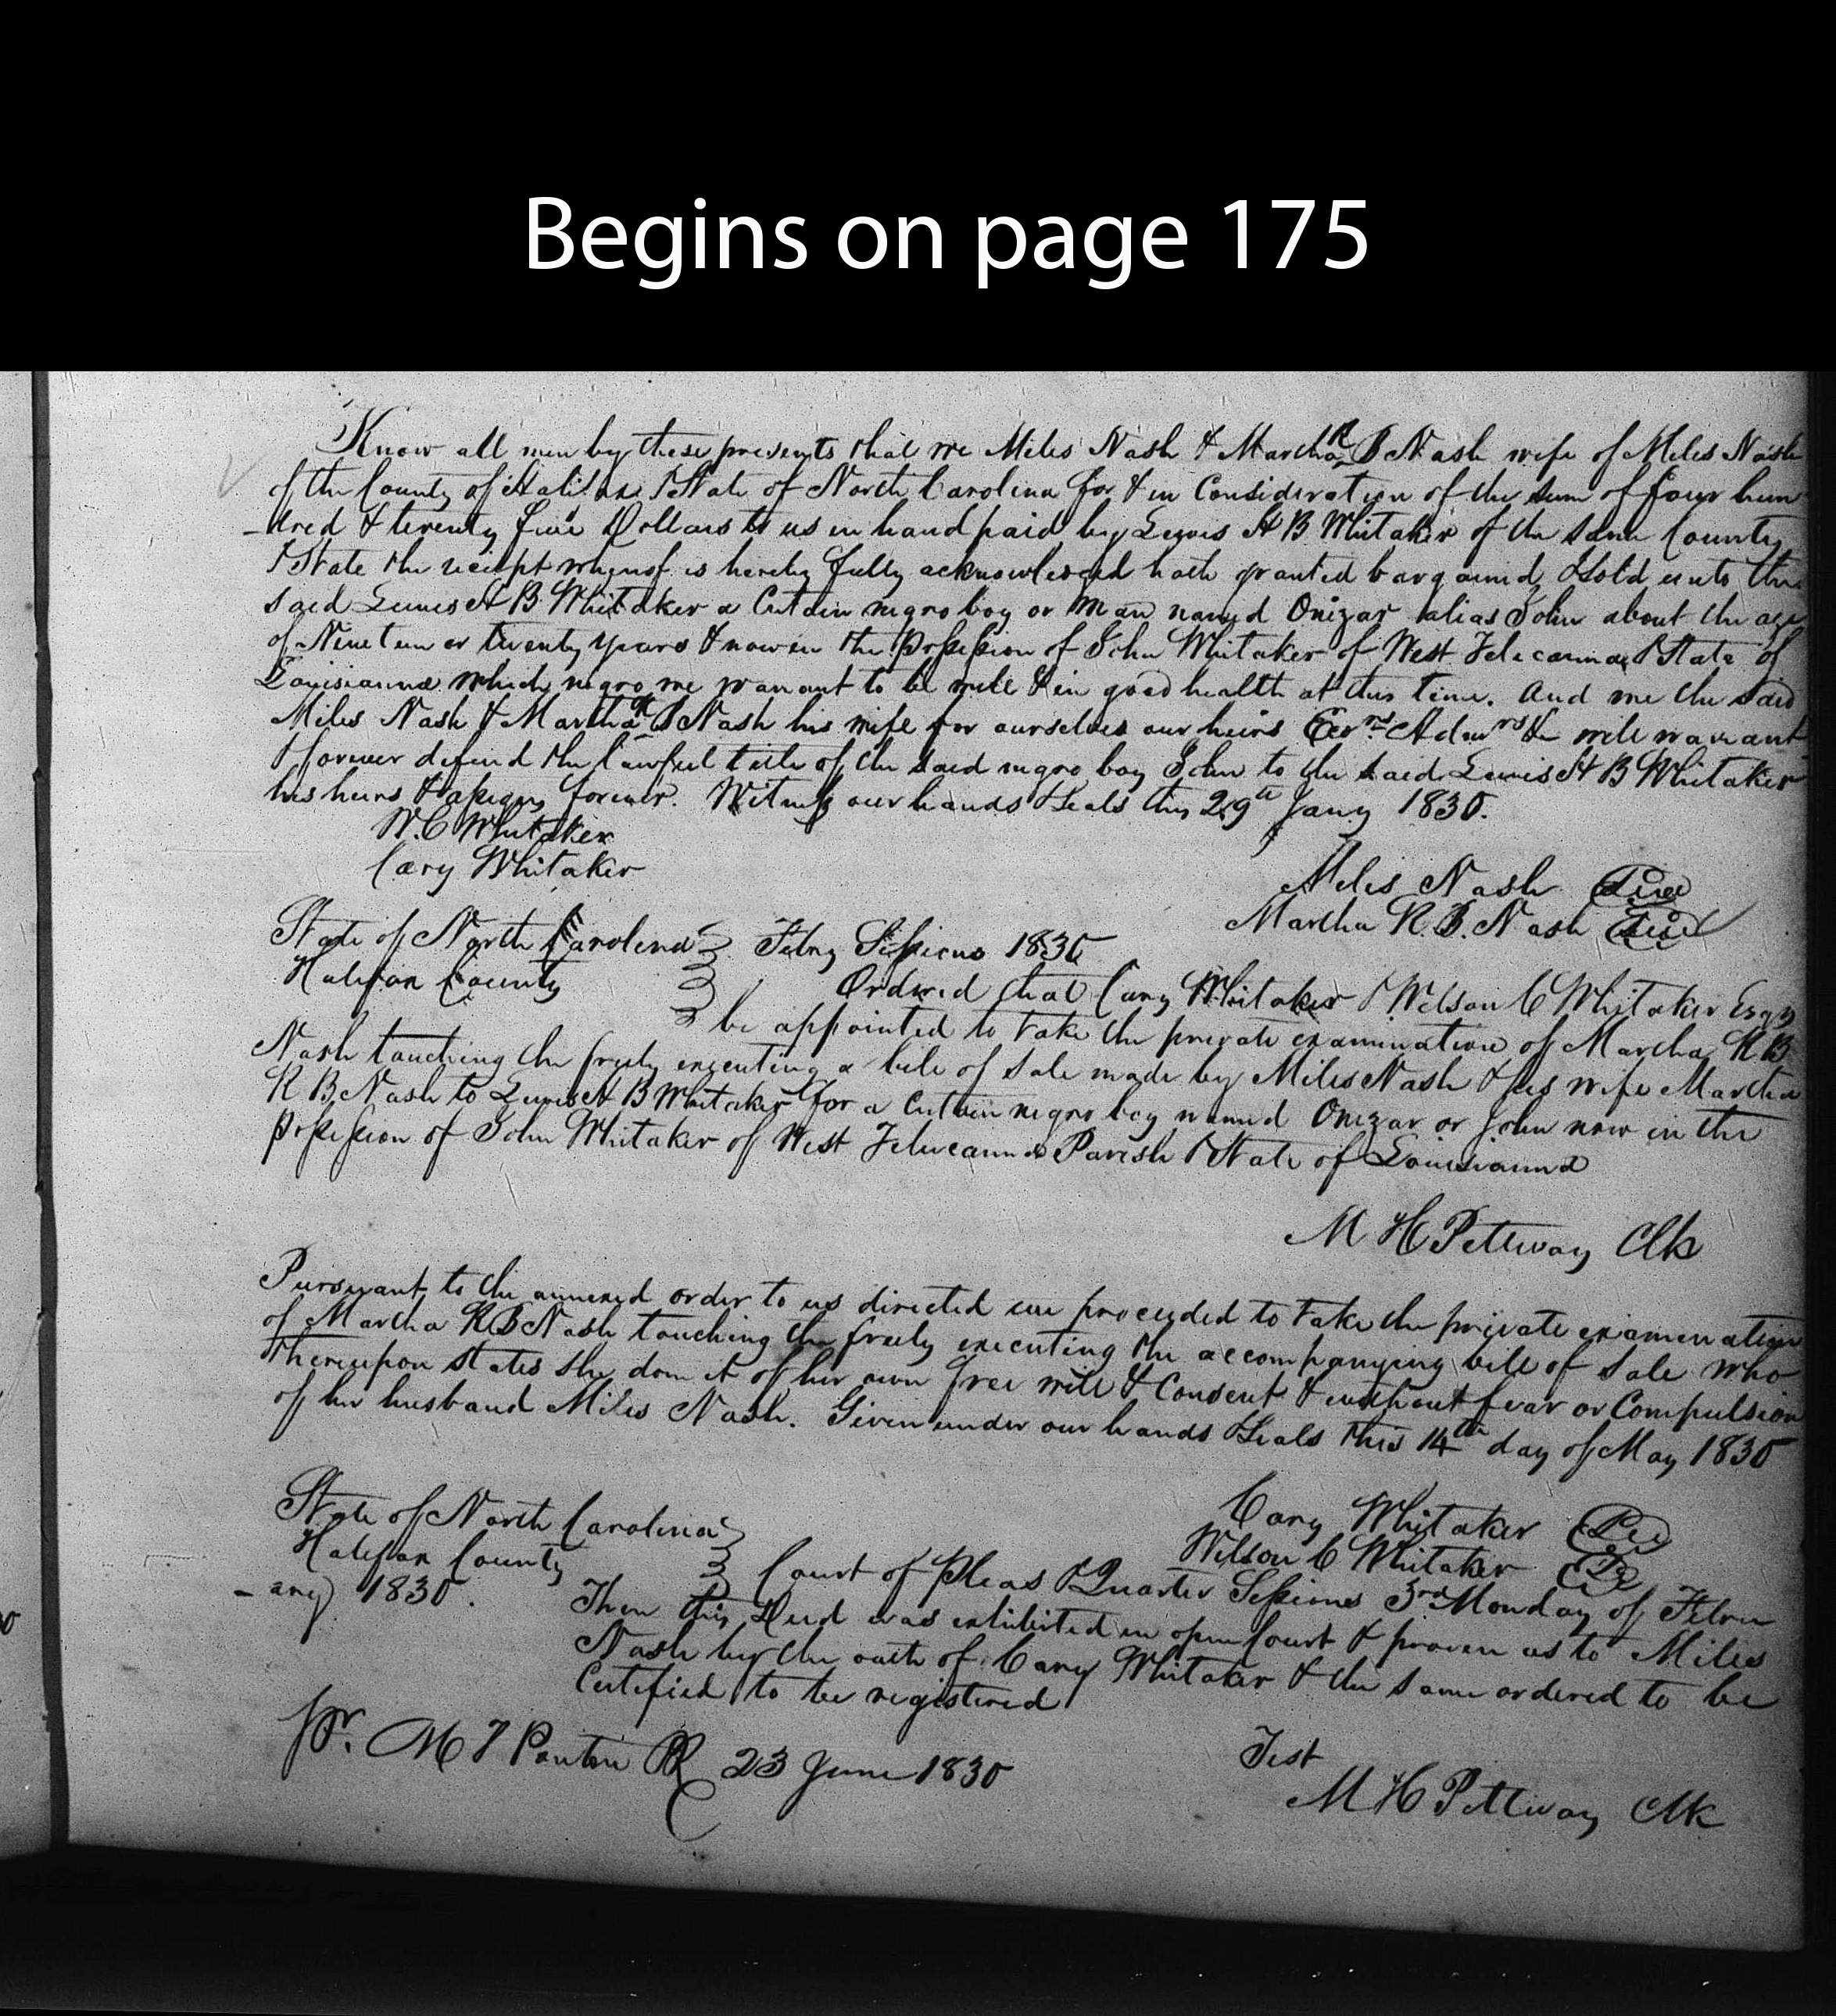 Begins on page 175
Know all men by these presents that we Miles Nash & Martha R B Nash wife of Miles Nash
of the County of Halifax & State of North Carolina for & in Consideration of the sum of four hun
-dred & twenty five Dollars to us in hand paid by Lewis H B Whitaker of the same County
& State the receipt whereof is hereby fully acknowledged hath granted bargained & sold unto the
said Lewis H B Whitaker a Certain negro boy or man named Onizar alias John about the age
of Nineteen or twenty years & now in the possession of John Whitaker of West Felecanna & State of
Louisianna which negro we warrant to be well & in good health at this time. And we the said
Miles Nash & Martha R B Nash his wife for ourselves our heirs Exrs Admrs &c will warrant
& forever defend the lawful title of the said negro boy John to the said Lewis H B Whitaker
his heirs & assigns forever. Witness our hands & seals this 29th Jany 1830.
W. C Whitaker
Cary Whitaker
Miles Nash Seal
Martha R. B. Nash Seal
State of North Carolina Febry Sessions 1830
Halifax County Ordered that Cary Whitaker & Wilson C Whitaker Esqrs
be appointed to take the private examination of Martha R B
Nash touching the freely executing a bile of sale made by Miles Nash & his wife Martha
R B Nash to Lewis H B Whitaker for a Certain negro boy named Onizar or John now in the
possession of John Whitaker of West Feleceanna Parish & State of Louisianna
M H Pettway Clk
Pursuant to the annexed order to us directed we proceeded to take the private examination
of Martha R B Nash touching the freely executing the accompanying bill of sale who
thereupon states she done it of her own free will & Consent & without fear or Compulsion
of her husband Miles Nash. Given under our hands & seals this 14th day of May 1830
Cary Whitaker Seal
Wilson C Whitaker Seal
State of North Carolina
Halifax County Court of Pleas & Quarter Sessions 3rd Monday of Febru
-ary 1830. Then this Deed was exhibited in open Court & proven as to Miles
Nash by the oath of Cary Whitaker & the same ordered to be
Certified & to be registered
Test
pr. M T Ponton PR 23 June 1830
M H Pettway Clk